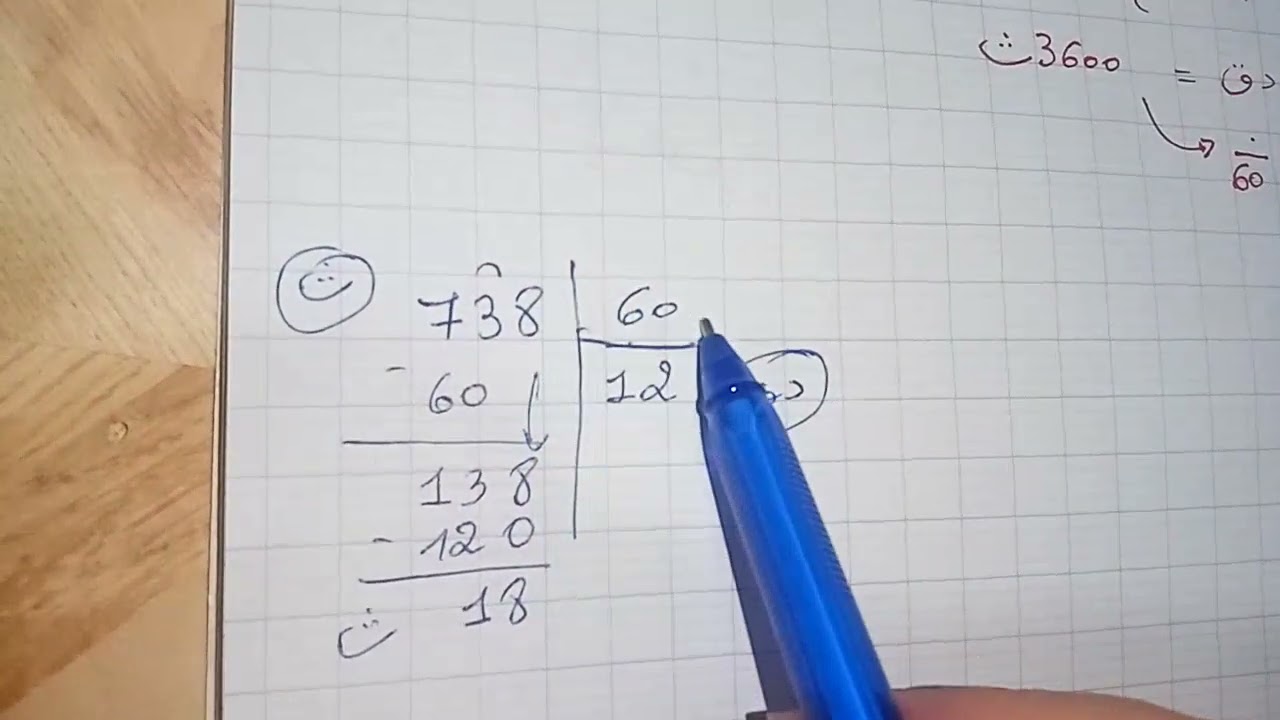 ث 3600 = دق
÷
60
ث 738 | 60
- 60 | 12 دق
138
- 120
ث 18